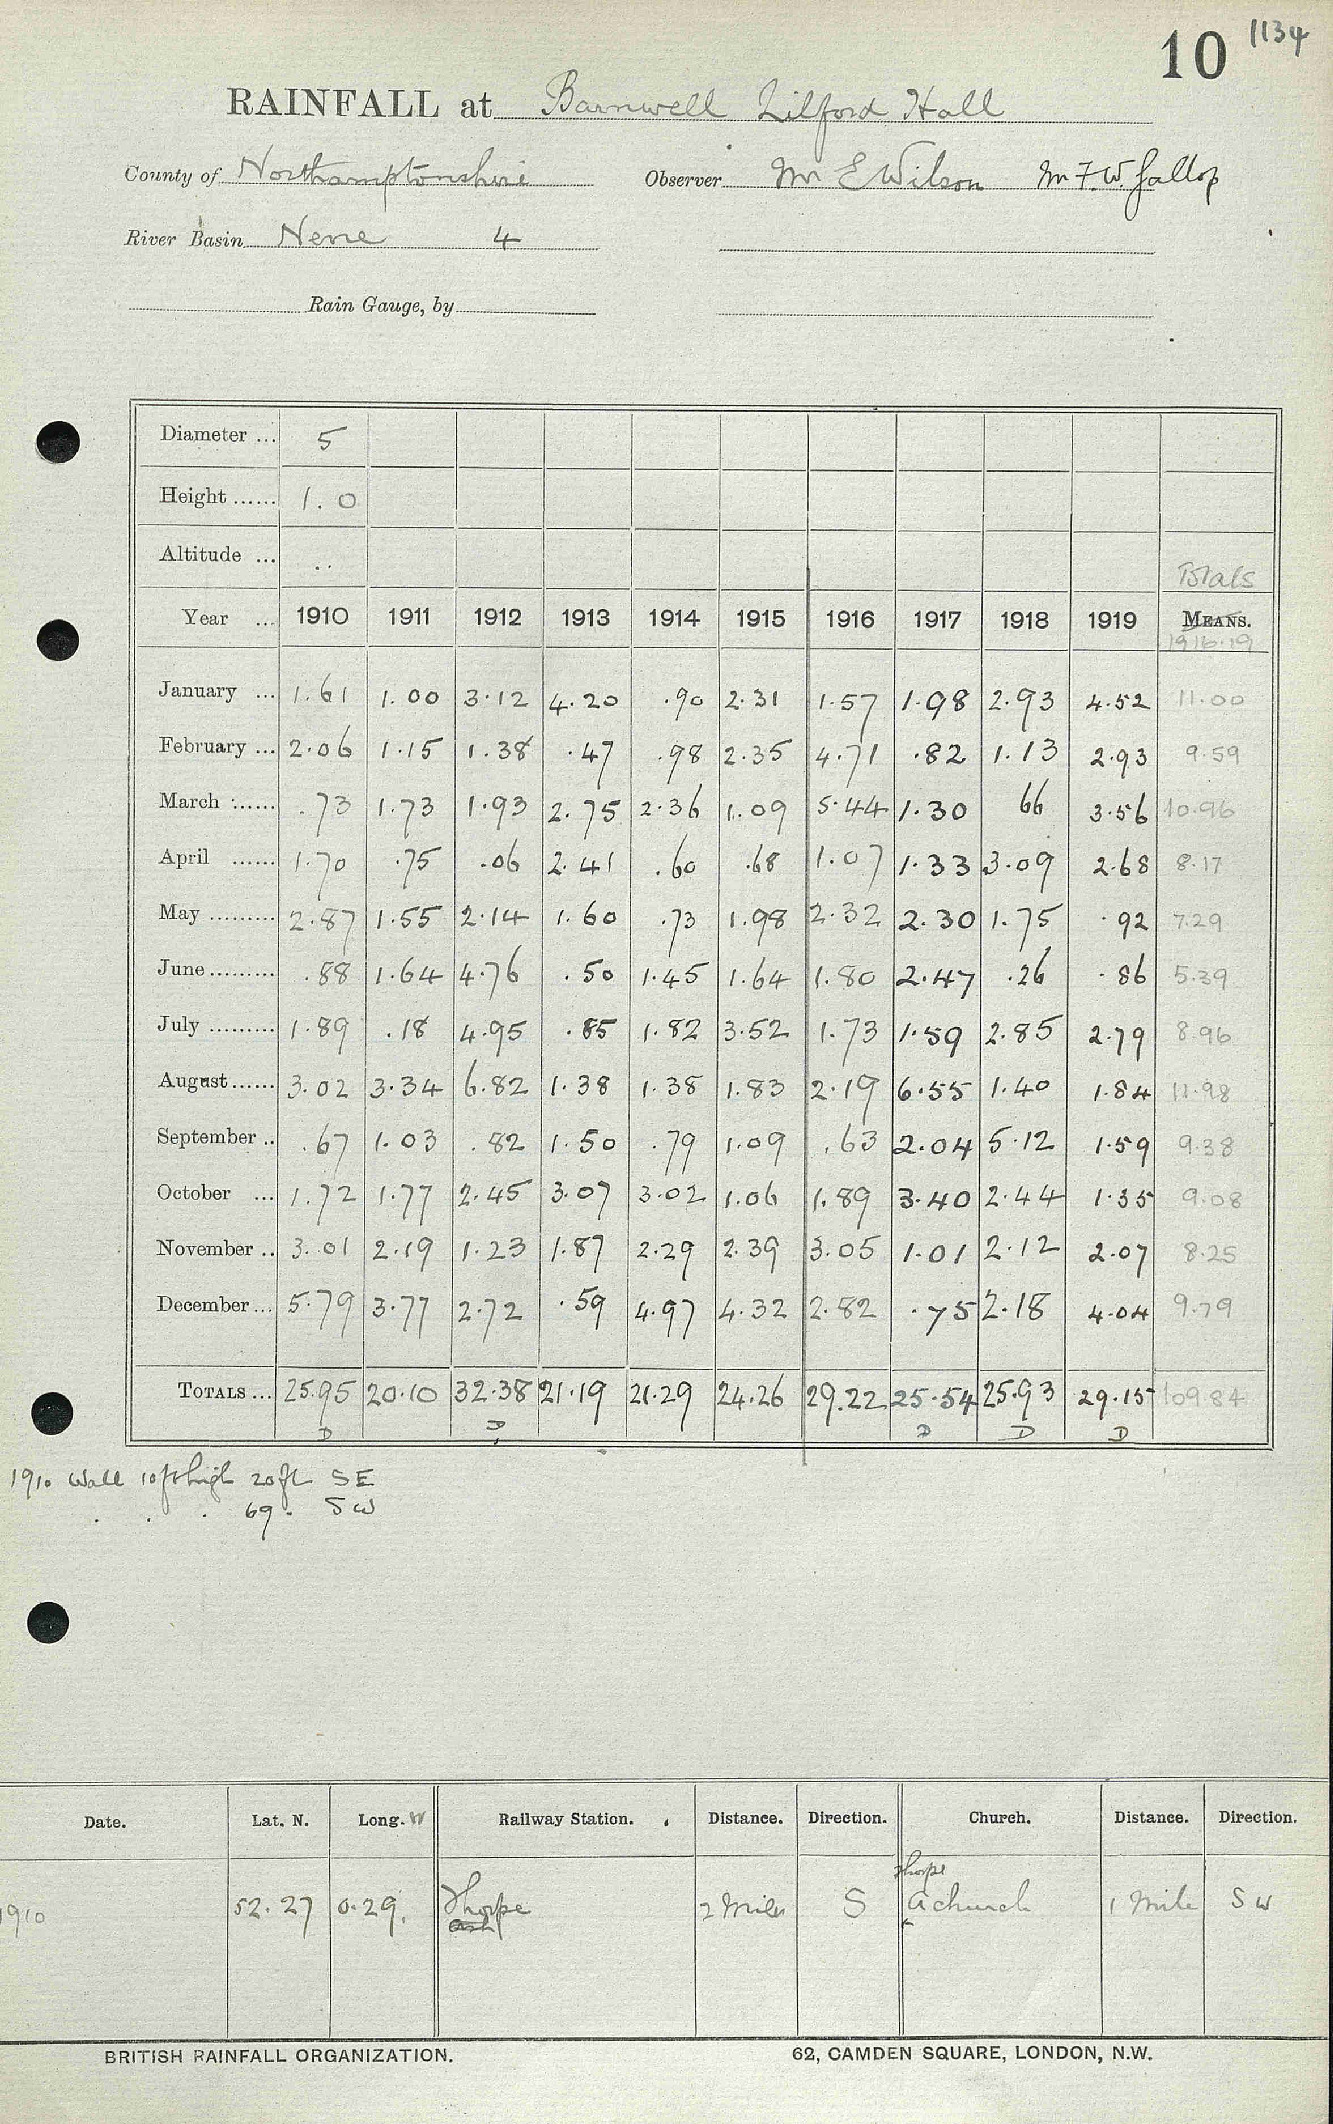 10 1134
RAINFALL at Barnwell Lilford Hall
County of Northamptonshire Observer Mr E Wilson Mr F.W. Gallop
River Basin Nene 4
Rain Gauge, by
Diameter ... 5
Height ...... 1.0
Altitude ... ..
Totals
Year ... 1910 1911 1912 1913 1914 1915 1916 1917 1918 1919 MEANS.
1916-19
January ... 1.61 1.00 3.12 4.20 .90 2.31 1.57 1.98 2.93 4.52 11.00
February ... 2.06 1.15 1.38 .47 .98 2.35 4.71 .82 1.13 2.93 9.59
March ...... .73 1.73 1.93 2.75 2.36 1.09 5.44 1.30 66 3.56 10.96
April ...... 1.70 .75 .06 2.41 .60 .68 1.07 1.33 3.09 2.68 8.17
May ......... 2.87 1.55 2.14 1.60 .73 1.98 2.32 2.30 1.75 .92 7.29
June ......... .88 1.64 4.76 .50 1.45 1.64 1.80 2.47 .26 .86 5.39
July ......... 1.89 .18 4.95 .85 1.82 3.52 1.73 1.59 2.85 2.79 8.96
August ...... 3.02 3.34 6.82 1.38 1.38 1.83 2.19 6.55 1.40 1.84 11.98
September .. .67 1.03 .82 1.50 .79 1.09 .63 2.04 5.12 1.59 9.38
October ... 1.72 1.77 2.45 3.07 3.02 1.06 1.89 3.40 2.44 1.35 9.08
November .. 3.01 2.19 1.23 1.87 2.29 2.39 3.05 1.01 2.12 2.07 8.25
December ... 5.79 3.77 2.72 .59 4.97 4.32 2.82 .75 2.18 4.04 9.79
TOTALS ... 25.95 20.10 32.38 21.19 21.29 24.26 29.22 25.54 25.93 29.15 109.84
D D D D D
1910 Wall 10ft high 20ft SE
. . . 69 . SW
Date. Lat. N. Long. W Railway Station. Distance. Direction. Church. Distance. Direction.
1910 52.27 0.29. Thorpe 2 Miles S Thorpe Achurch 1 Mile SW
BRITISH RAINFALL ORGANIZATION. 62, CAMDEN SQUARE, LONDON, N.W.